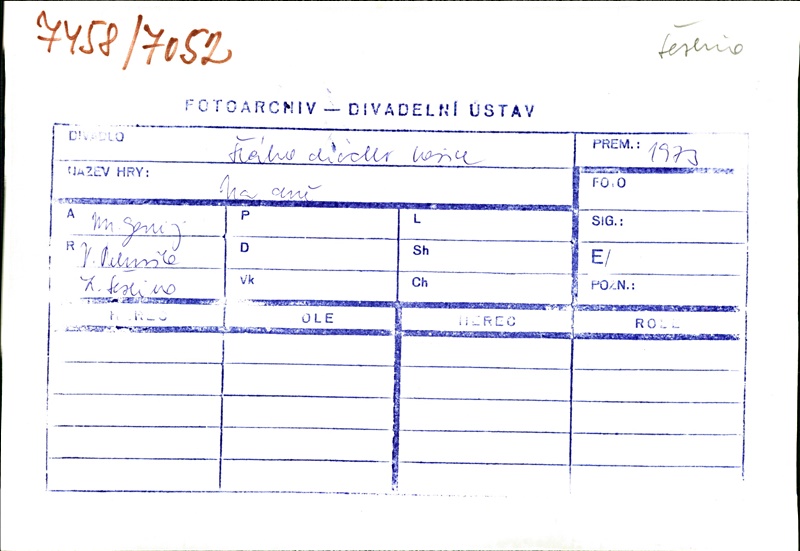 7458/7052
FOTOARCHIV — DIVADELNÍ ÚSTAV
DIVADLO
divadlo
PREM.: 1973
NÁZEV HRY: Na dně
FOTO
A M. Gorkij
P
L
SIG.:
R V.
D
Sh
E/
Vk
Ch
POZN.:
HEREC ROLE HEREC ROLE